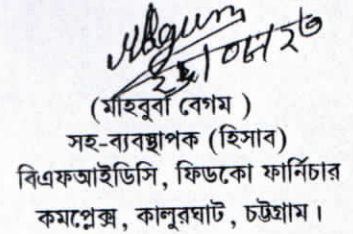 (মাহবুবা বেগম )
সহ-ব্যবস্থাপক (হিসাব)
বিএফআইডিসি, ফিডকো ফার্নিচার
কমপ্লেক্স, কালুরঘাট, চট্টগ্রাম।